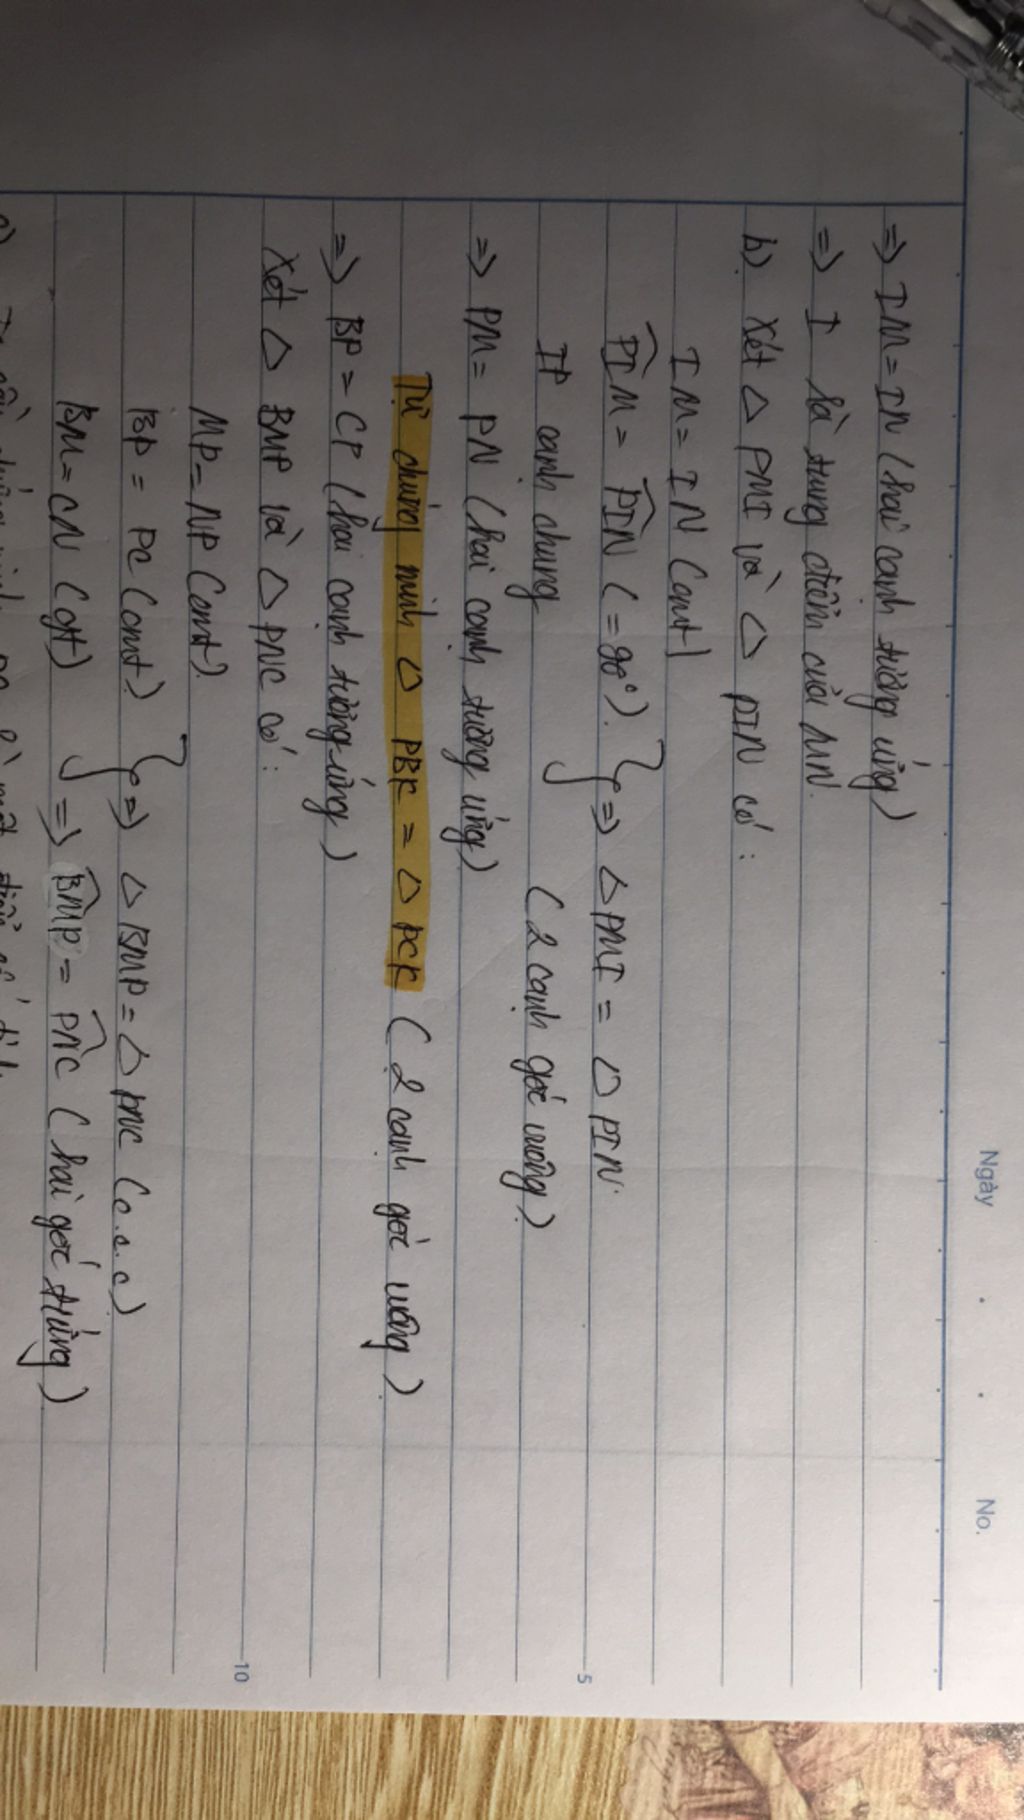 Ngày . . No.
=> IM = IN (hai cạnh tương ứng)
=> I là trung điểm của MN.
b) Xét △ PMI và △ PIN có:
IM = IN (cmt)
PIM = PIN (= 90°). } => △ PMI = △ PIN.
IP cạnh chung (2 cạnh góc vuông)
5
=> PM = PN (hai cạnh tương ứng)
Tự chứng minh △ PBK = △ PCK (2 cạnh góc vuông)
=> BP = CP (hai cạnh tương ứng)
Xét △ BMP và △ PNC có:
MP = NP (cmt).
BP = PC (cmt) } => △ BMP = △ PNC (c.c.c)
10
BM = CN (gt) => BMP = PNC (hai góc tương ứng)
c)